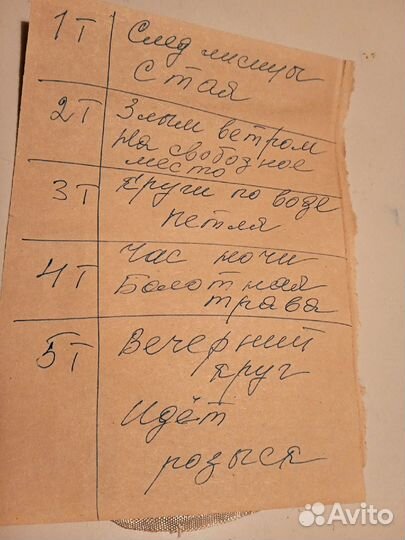 1Т След лисицы
Стая
2Т Злым ветром
На свободное
место
3Т Круги по воде
Петля
4Т Час ночи
Болотная
трава
5Т Вечерний
круг
Идёт
розыск
Avito